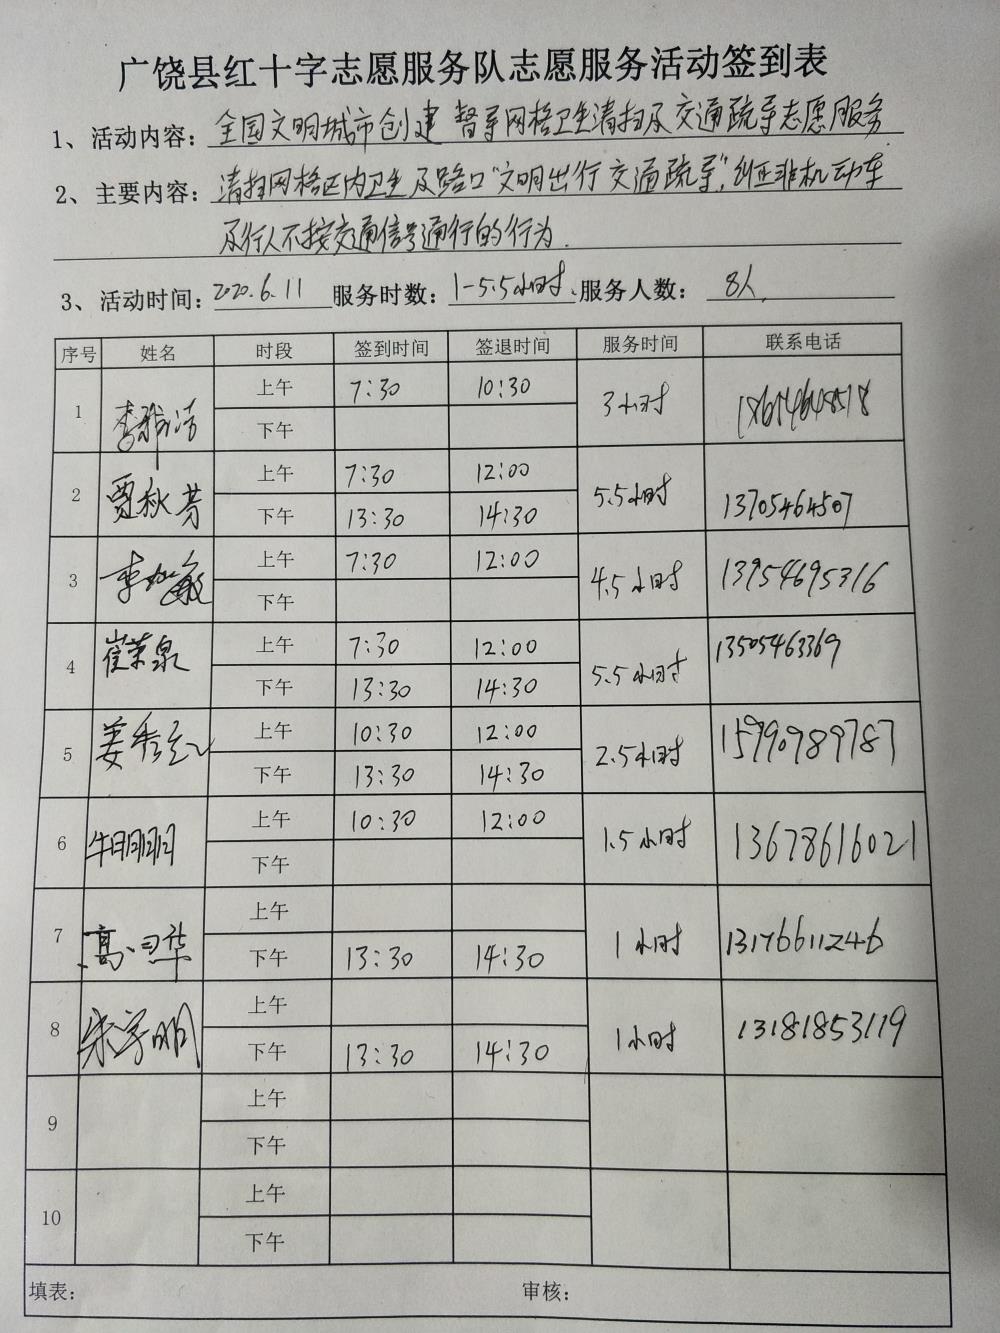 广饶县红十字志愿服务队志愿服务活动签到表
1、活动内容：全国文明城市创建 督导网格卫生清扫及交通疏导志愿服务
2、主要内容：清扫网格区内卫生及路口“文明出行 交通疏导”，纠正非机动车
及行人不按交通信号通行的行为.
3、活动时间：2020.6.11 服务时数：1-5.5小时. 服务人数：8人.
序号 姓名 时段 签到时间 签退时间 服务时间 联系电话
1 上午 7:30 10:30 3小时
下午
2 贾秋芳 上午 7:30 12:00 5.5小时 13705464507
下午 13:30 14:30
3 上午 7:30 12:00 4.5小时 13954695316
下午
4 崔荣泉 上午 7:30 12:00 5.5小时 13505463369
下午 13:30 14:30
5 上午 10:30 12:00 2.5小时 15990989787
下午 13:30 14:30
6 上午 10:30 12:00 1.5小时 13678616021
下午
7 上午 1小时 13176611246
下午 13:30 14:30
8 上午 1小时 13181853119
下午 13:30 14:30
9 上午
下午
10 上午
下午
填表： 审核：